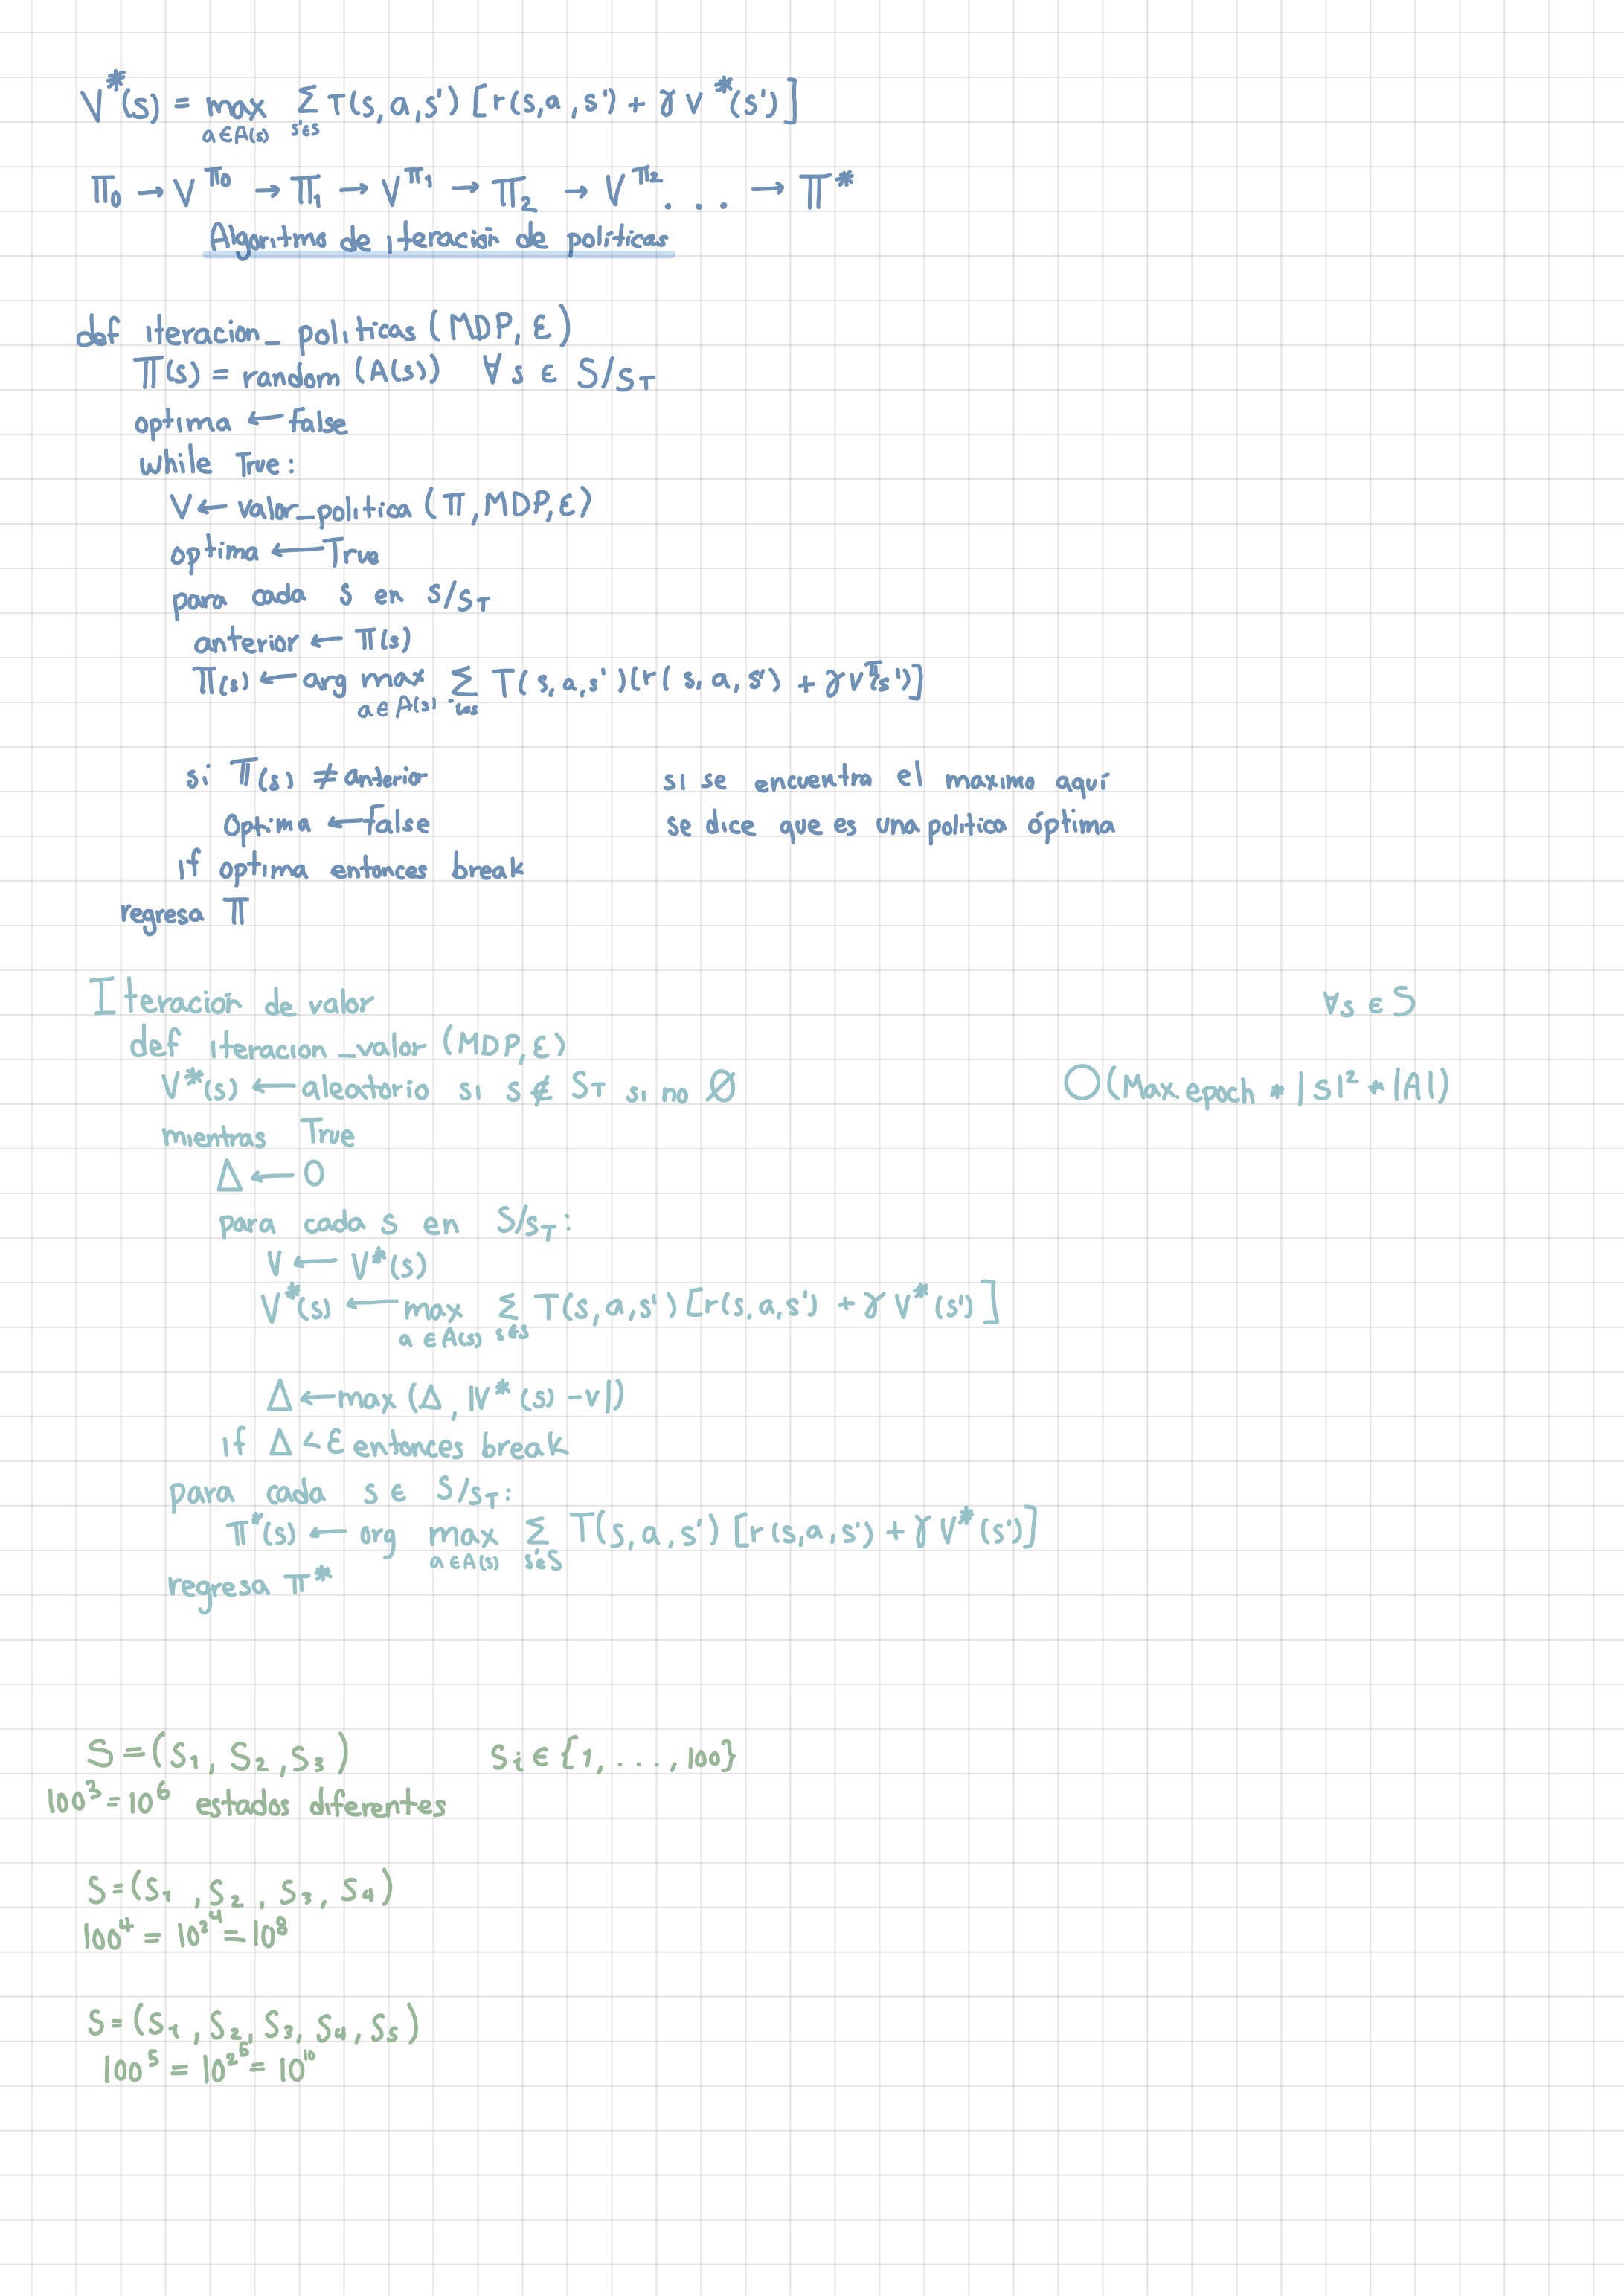 V*(s) = max_{a∈A(s)} Σ_{s'∈S} T(s,a,s') [r(s,a,s') + γ V*(s')]
π₀ → V^{π₀} → π₁ → V^{π₁} → π₂ → V^{π₂} . . . → π*
Algoritmo de iteración de políticas
def iteracion_politicas (MDP, ε)
π(s) = random (A(s)) ∀ s ∈ S/S_T
optima ← false
while True:
V ← valor_politica (π, MDP, ε)
optima ← True
para cada s en S/S_T
anterior ← π(s)
π(s) ← arg max_{a∈A(s)} Σ T(s,a,s')(r(s,a,s') + γ V^π(s')]
si π(s) ≠ anterior si se encuentra el maximo aquí
Optima ← false se dice que es una politica óptima
if optima entonces break
regresa π
Iteración de valor ∀s ∈ S
def iteracion_valor (MDP, ε)
V*(s) ← aleatorio si s ∉ S_T si no Ø O(Max. epoch * |S|² * |A|)
mientras True
Δ ← 0
para cada s en S/S_T:
V ← V*(s)
V*(s) ← max_{a∈A(s)} Σ_{s∈S} T(s,a,s') [r(s,a,s') + γ V*(s')]
Δ ← max (Δ, |V*(s) - v|)
if Δ < ε entonces break
para cada s ∈ S/S_T:
π*(s) ← arg max_{a∈A(s)} Σ_{s'∈S} T(s,a,s') [r(s,a,s') + γ V*(s')]
regresa π*
S = (S₁, S₂, S₃) S_i ∈ {1, . . . , 100}
100³ = 10⁶ estados diferentes
S = (S₁, S₂, S₃, S₄)
100⁴ = 10^{2^4} = 10⁸
S = (S₁, S₂, S₃, S₄, S₅)
100⁵ = 10^{2^5} = 10¹⁰